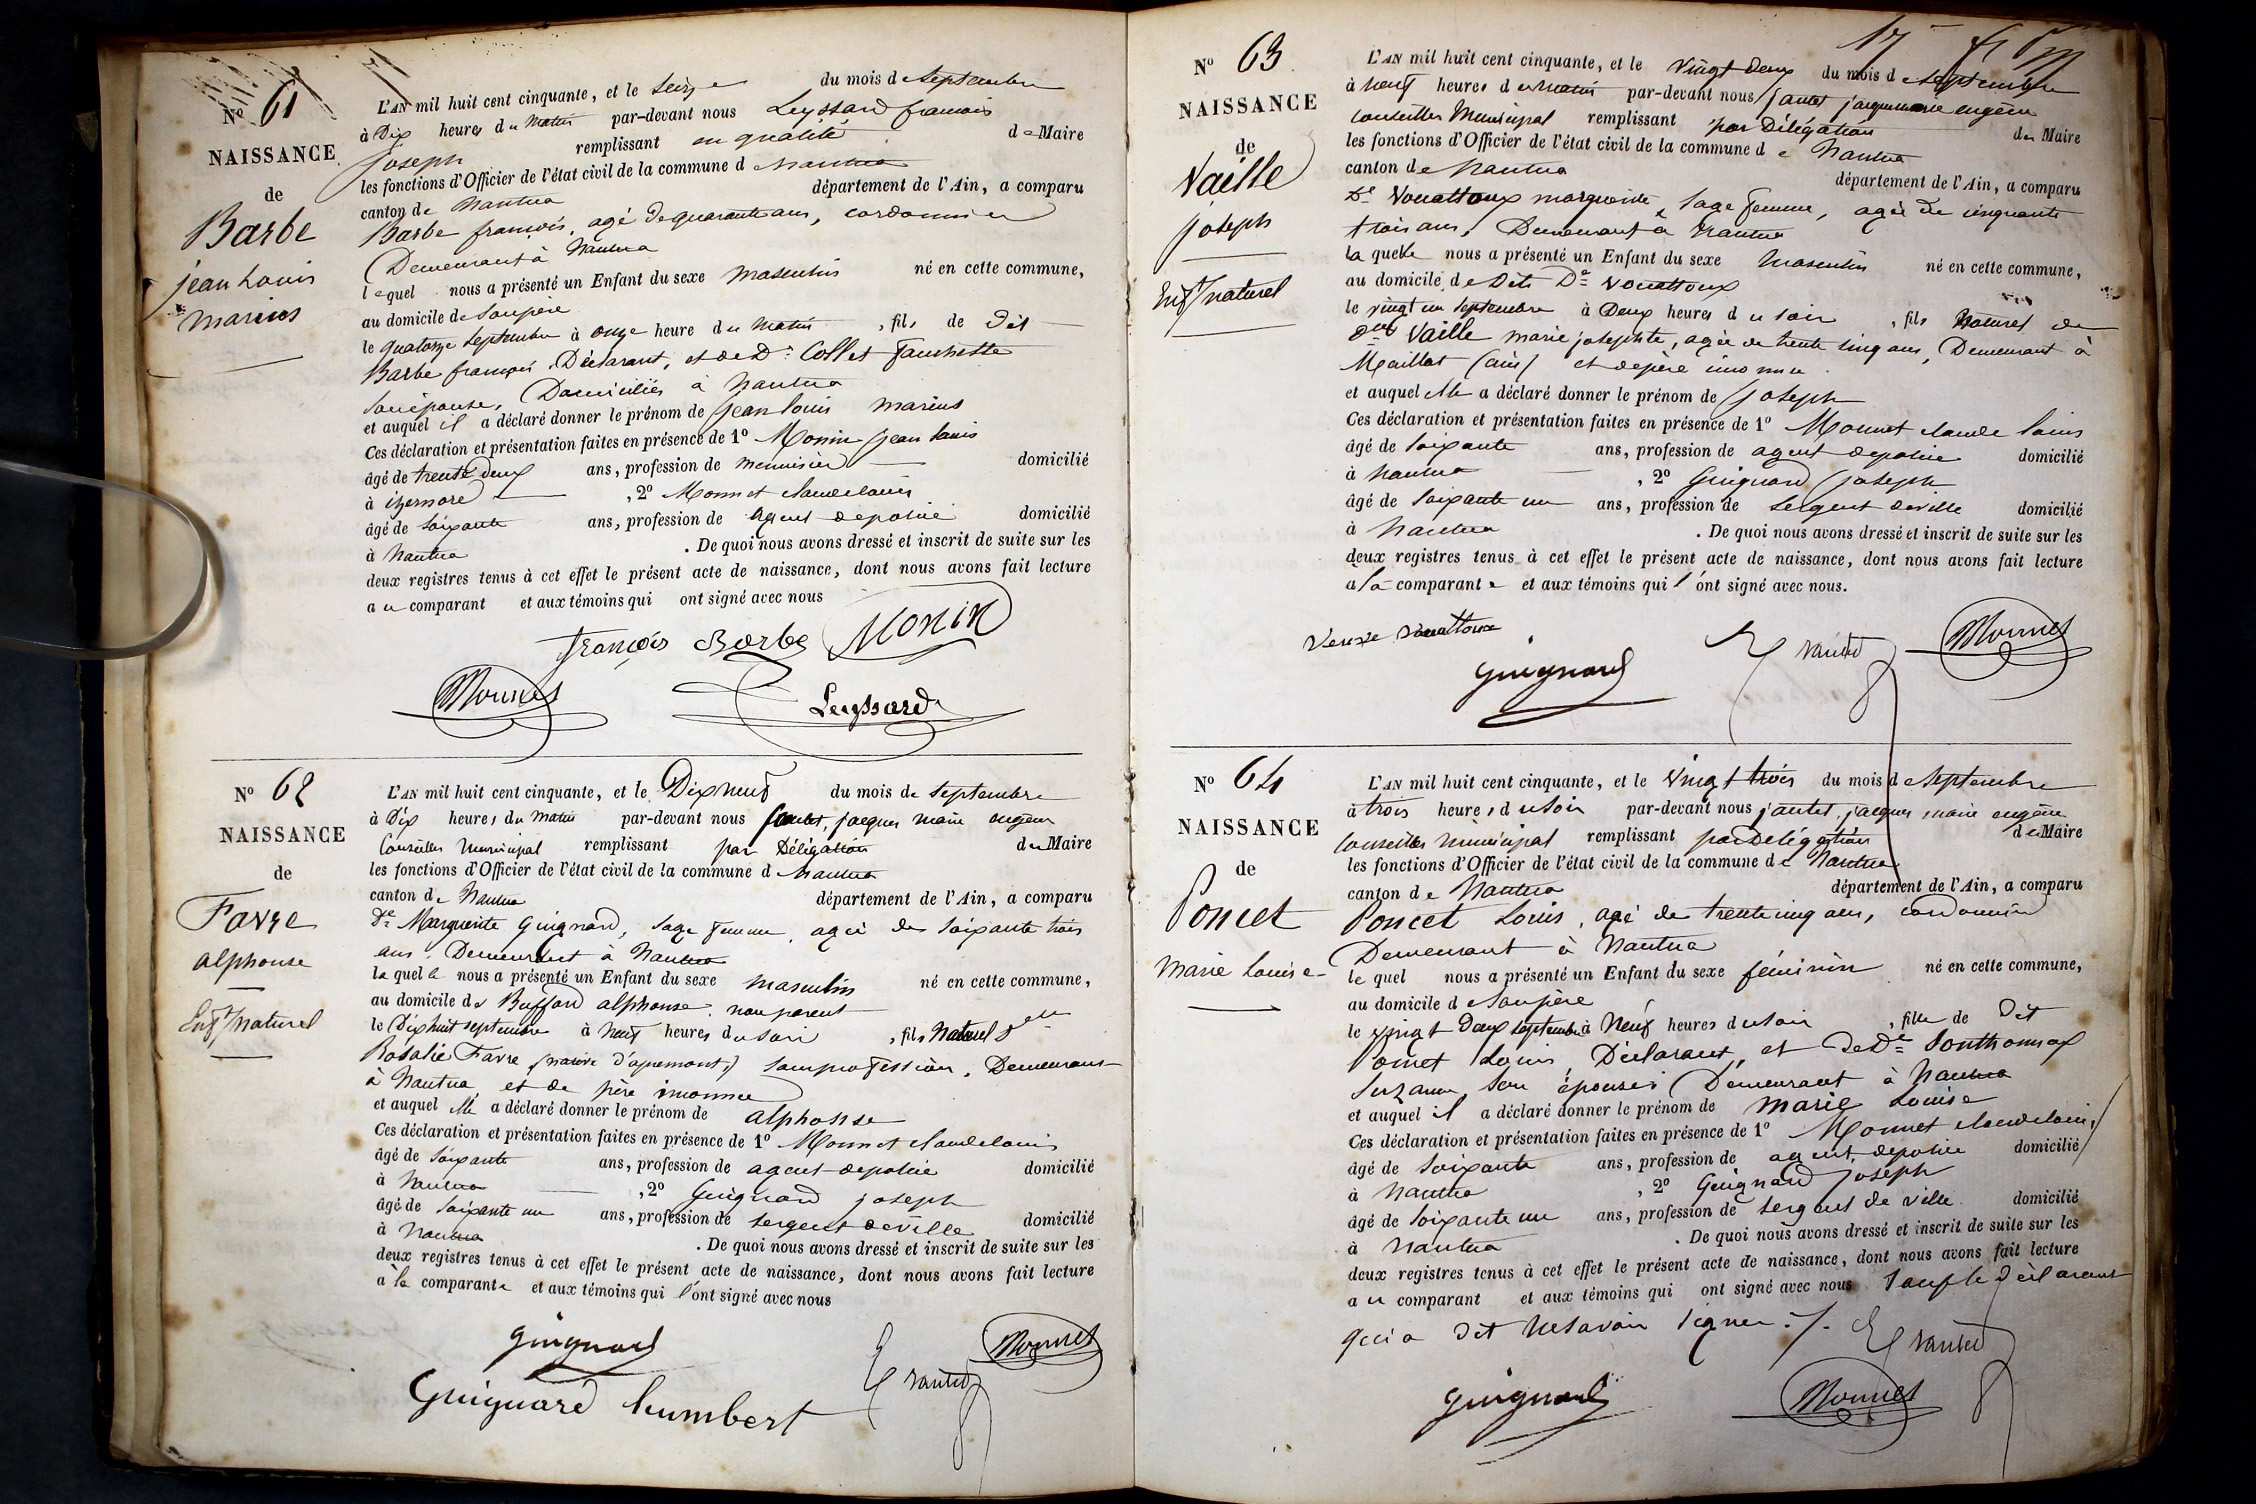 Nº 61
NAISSANCE
de
Barbe
jean Louis
marius
L'AN mil huit cent cinquante, et le seize du mois de Septembre
à Dix heures du Matin par-devant nous Leyssard francois
joseph remplissant en qualité de Maire
les fonctions d'Officier de l'état civil de la commune de Nantua
canton de Nantua département de l'Ain, a comparu
Barbe françois, agé de quarante ans, cordonnier
Demeurant à Nantua
lequel nous a présenté un Enfant du sexe masculin né en cette commune,
au domicile de Son père
le quatorze septembre à onze heure du matin, fils de Dit
Barbe françois, Déclarant, et de De Collet fanchette
son épouse, Domiciliés à Nantua
et auquel il a déclaré donner le prénom de jean louis marius
Ces déclaration et présentation faites en présence de 1º Monin jean louis
âgé de trente deux ans, profession de menuisier domicilié
à izernore, 2º Monnet claude louis
âgé de soixante ans, profession de agent de police domicilié
à Nantua. De quoi nous avons dressé et inscrit de suite sur les
deux registres tenus à cet effet le présent acte de naissance, dont nous avons fait lecture
au comparant et aux témoins qui ont signé avec nous
françois Barbe Monin
Monnet Leyssard
Nº 62
NAISSANCE
de
Favre
alphonse
Enft naturel
L'AN mil huit cent cinquante, et le Dix neuf du mois de Septembre
à Dix heures du matin par-devant nous jantet, jacques marie eugène
Conseiller municipal remplissant par Délégation du Maire
les fonctions d'Officier de l'état civil de la commune de Nantua
canton de Nantua département de l'Ain, a comparu
De Marguerite Guignard, sage femme, agée de soixante trois
ans, Demeurant à Nantua
laquelle nous a présenté un Enfant du sexe masculin né en cette commune,
au domicile de Buffard alphonse, non parent
le Dix huit septembre à neuf heures du soir, fils Naturel de
Rosalie Favre (native d'apremont,) sans profession, Demeurant
à Nantua, et de père inconnu
et auquel elle a déclaré donner le prénom de alphonse
Ces déclaration et présentation faites en présence de 1º Monnet claude louis
âgé de soixante ans, profession de agent de police domicilié
à Nantua, 2º Guignard joseph
âgé de soixante un ans, profession de sergent de ville domicilié
à Nantua. De quoi nous avons dressé et inscrit de suite sur les
deux registres tenus à cet effet le présent acte de naissance, dont nous avons fait lecture
a la comparante et aux témoins qui l'ont signé avec nous
guignard Monnet
Guignard humbert E jantet
Nº 63
NAISSANCE
de
Vaille
joseph
Enft naturel
17
L'AN mil huit cent cinquante, et le vingt deux du mois de septembre
à neuf heures du matin par-devant nous jantet jacques marie eugène
conseiller Municipal remplissant par Délégation du Maire
les fonctions d'Officier de l'état civil de la commune de Nantua
canton de Nantua département de l'Ain, a comparu
De Vouattoux marguerite, sage femme, agée de cinquante
trois ans, Demeurant à Nantua
laquelle nous a présenté un Enfant du sexe masculin né en cette commune,
au domicile de Dite De vouattoux
le vingt un septembre à Deux heures du soir, fils Naturel de
Vaille marie josephte, agée de trente cinq ans, Demeurant à
Maillat (ain) et de père inconnu
et auquel elle a déclaré donner le prénom de joseph
Ces déclaration et présentation faites en présence de 1º Monnet claude louis
âgé de soixante ans, profession de agent de police domicilié
à Nantua, 2º Guignard joseph
âgé de soixante un ans, profession de sergent de ville domicilié
à Nantua. De quoi nous avons dressé et inscrit de suite sur les
deux registres tenus à cet effet le présent acte de naissance, dont nous avons fait lecture
a la comparante et aux témoins qui l'ont signé avec nous.
veuve vouattoux E jantet Monnet
guignard
Nº 64
NAISSANCE
de
Poncet
marie Louise
L'AN mil huit cent cinquante, et le vingt trois du mois de Septembre
à trois heures du soir par-devant nous jantet, jacques marie eugène
conseiller municipal remplissant par Délégation du Maire
les fonctions d'Officier de l'état civil de la commune de Nantua
canton de Nantua département de l'Ain, a comparu
Poncet Louis, agé de trente cinq ans, cordonnier
Demeurant à Nantua
lequel nous a présenté un Enfant du sexe féminin né en cette commune,
au domicile de son père
le vingt Deux septembre à Neuf heures du soir, fille de Dit
Poncet Louis, Déclarant, et de De Ponthonnax
Suzanne son épouse; Demeurant à Nantua
et auquel il a déclaré donner le prénom de marie Louise
Ces déclaration et présentation faites en présence de 1º Monnet claude louis,
âgé de soixante ans, profession de agent de police domicilié
à Nantua, 2º Guignard joseph
âgé de soixante un ans, profession de sergent de ville domicilié
à Nantua. De quoi nous avons dressé et inscrit de suite sur les
deux registres tenus à cet effet le présent acte de naissance, dont nous avons fait lecture
au comparant et aux témoins qui ont signé avec nous sauf le déclarant
qui a Dit ne savoir signer ./. E jantet
guignard Monnet